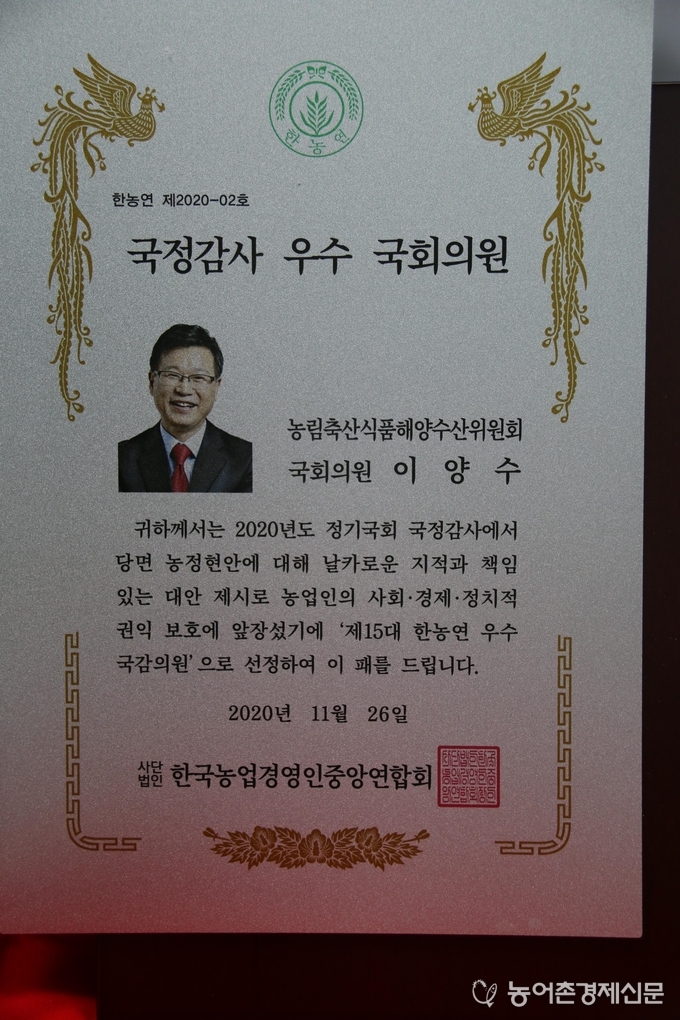 한농연
한농연 제2020-02호
국정감사 우수 국회의원
농림축산식품해양수산위원회
국회의원 이 양 수
귀하께서는 2020년도 정기국회 국정감사에서
당면 농정현안에 대해 날카로운 지적과 책임
있는 대안 제시로 농업인의 사회·경제·정치적
권익 보호에 앞장섰기에 ‘제15대 한농연 우수
국감의원’으로 선정하여 이 패를 드립니다.
2020년 11월 26일
사단
법인 한국농업경영인중앙연합회
농어촌경제신문